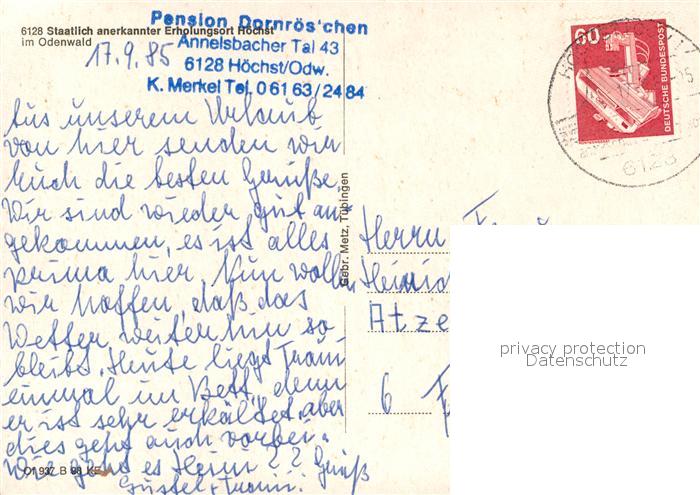 Pension Dornrös'chen
6128 Staatlich anerkannter Erholungsort Höchst
im Odenwald
Annelsbacher Tal 43
17.9.85
6128 Höchst/Odw.
K. Merkel Tel. 0 61 63 / 24 84
Aus unserem Urlaub
von hier senden wir
Euch die besten Grüße.
Wir sind wieder gut an-
gekommen, es ist alles
prima hier. Nun wollen
wir hoffen, daß das
Wetter weiterhin so
bleibt. Heute liegt Franzi
einmal im Bett, denn
er ist sehr erkältet, aber
dies geht auch vorbei.
Wie geht es Heini?? Gruß
Gustel + Franzi.
01 937 B 88 KE
Gebr. Metz, Tübingen
60
DEUTSCHE BUNDESPOST
6128
Herrn
Atze
6
privacy protection
Datenschutz